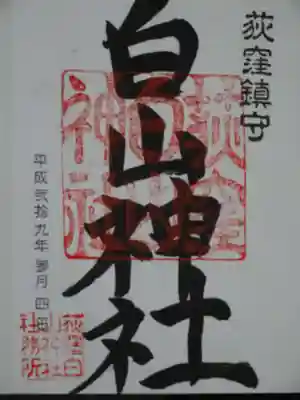 荻窪鎮守
白山神社
平成弐拾九年 参月 四日
荻窪白
山神社
社務所